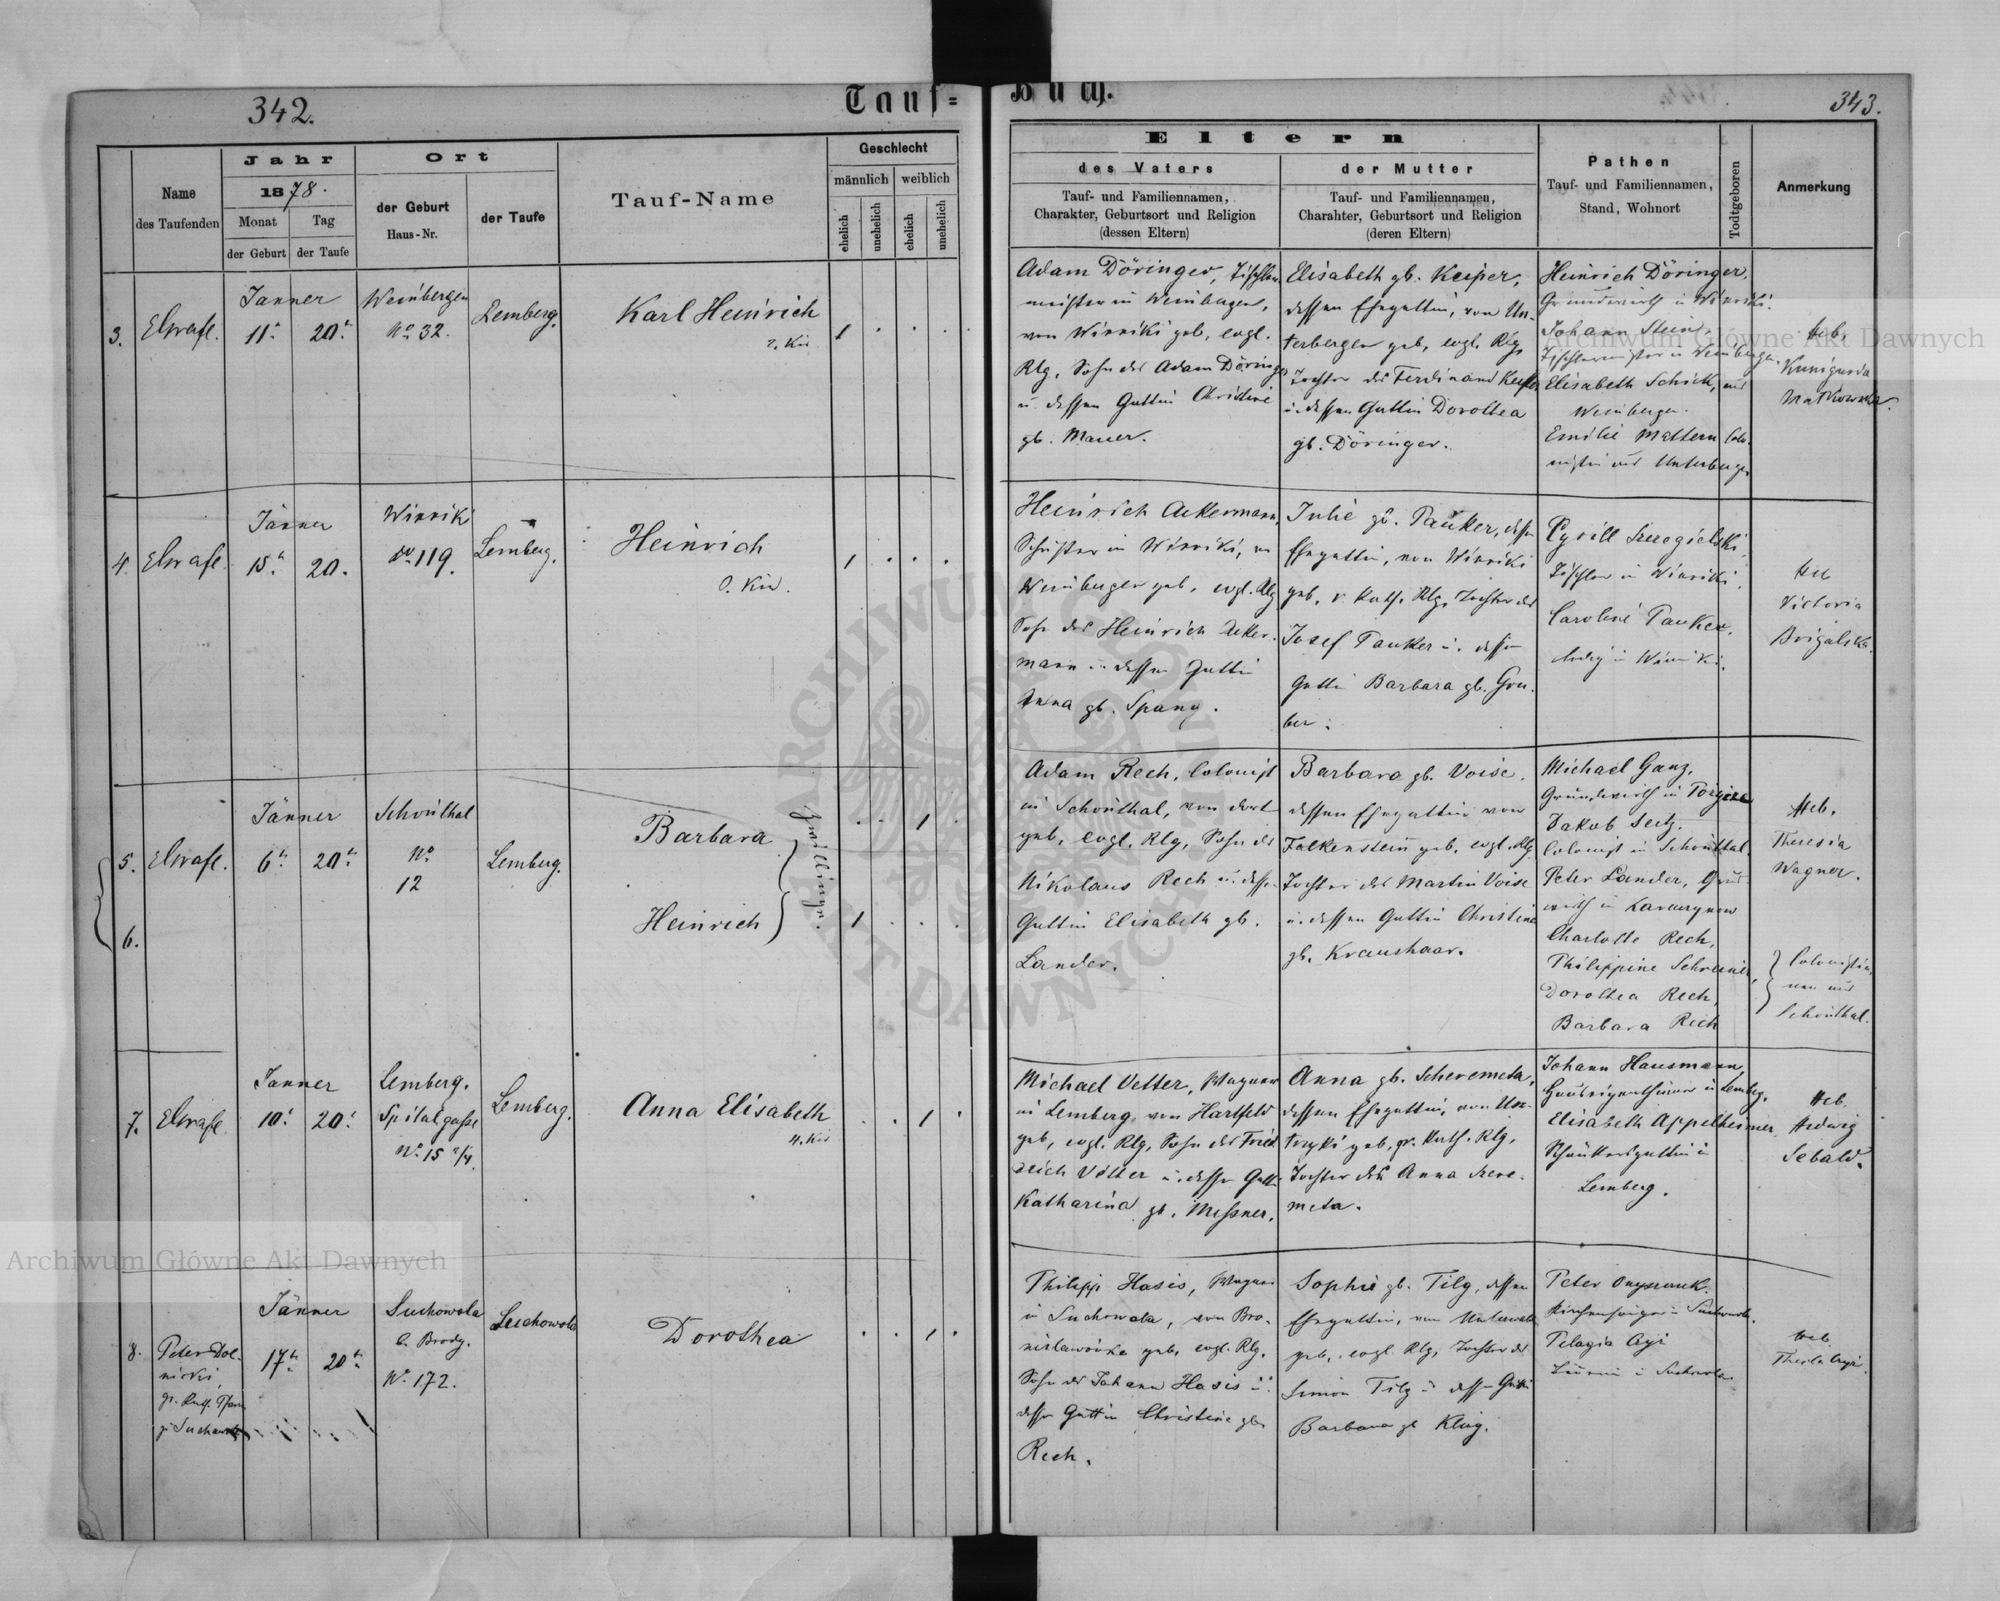 342.
Tauf=
Buch.
343.
Name
des Taufenden
Jahr
1878.
Monat
Tag
der Geburt
der Taufe
Ort
der Geburt
Haus-Nr.
der Taufe
Tauf-Name
Geschlecht
männlich
weiblich
ehelich
unehelich
ehelich
unehelich
Eltern
des Vaters
Tauf- und Familiennamen,
Charakter, Geburtsort und Religion
(dessen Eltern)
der Mutter
Tauf- und Familiennamen,
Charahter, Geburtsort und Religion
(deren Eltern)
Pathen
Tauf- und Familiennamen,
Stand, Wohnort
Todtgeboren
Anmerkung
3.
Jänner
11.
20.
Weinbergen
No 32.
Lemberg.
Karl Heinrich
1
Adam Döringer, Tischler
meister in Weinbergen,
von Winniki geb, evgl.
Rlg, Sohn des Adam Döringer
u. dessen Gattin Christine
gb. Mauer.
Elisabeth gb. Keiper,
dessen Ehegattin, von Un-
terbergen geb, evgl. Rlg,
Tochter des Ferdinand Keiper
u. dessen Gattin Dorothea
gb. Döringer.
Heinrich Döringer,
Grundwirth in Winniki.
Johann Stein,
Tischlermeister in Weinbergen.
Elisabeth Schick, aus
Weinbergen.
Emilie Mattern Colo-
nistin aus Unterbergen
Heb.
Kunigunda
4.
Jänner
15.
20.
Winniki
No 119.
Lemberg.
Heinrich
1
Heinrich Ackermann,
Schuster in Winniki, in
Weinbergen geb, evgl. Rlg
Sohn des Heinrich Acker-
mann u. dessen Gattin
Anna gb. Spang.
Julie gb. Pauker, dessen
Ehegattin, von Winniki
geb, r. Kath. Rlg, Tochter des
Josef Pauker u. dessen
Gattin Barbara gb. Gru-
ber.
Cyrill
Tischler in Winniki.
Caroline Pauker,
ledig in Winniki.
Heb
Victoria
5.
6.
Jänner
6.
20.
Schönthal
No
12
Lemberg.
Barbara
Heinrich
Zwillinge.
1
1
Adam Rech, Colonist
in Schönthal, von dort
geb, evgl. Rlg, Sohn des
Nikolaus Rech u. dessen
Gattin Elisabeth gb.
Lander.
Barbara gb. Voise.
dessen Ehegattin von
Falkenstein geb, evgl. Rlg
Tochter des Martin Voise
u. dessen Gattin Christina
gb. Kraushaar.
Michael Ganz,
Grundwirth in
Jakob Seitz,
Colonist in Schönthal.
Peter Lander, Grund
wirth in
Charlotte Rech,
Philippine Schreiner,
Dorothea Rech,
Barbara Rech
Heb.
Theresia
Wagner.
Colonistin-
nen aus
Schönthal.
7.
Jänner
10.
20.
Lemberg.
Spitalgasse
No 15 2/4.
Lemberg.
Anna Elisabeth
1
Michael Vetter, Wagner
in Lemberg, von Hartfeld
geb, evgl. Rlg, Sohn des Fried
rich Vetter u. dessen Gattin
Katharina gb. Messner.
Anna gb. Scheremeta,
dessen Ehegattin, von
geb, gr. Kath. Rlg,
Tochter der Anna Schere-
meta.
Johann Hausmann,
Hauseigenthümer in Lemberg.
Elisabeth Appelheimer
in
Lemberg.
Heb
Hedwig
Sebald.
8.
Peter Dol-
nicki
gr. Kath. Pfarrer
in Suchowola
Jänner
17.
20.
Suchowola
b. Brody.
No 172.
Suchowola
Dorothea
1
Philipp Hasis, Wagner
in Suchowola, von Bro-
nislawówka geb, evgl. Rlg.
Sohn des Johann Hasis u.
dessen Gattin Christine gb.
Rech.
Sophie gb. Tilg, dessen
Ehegattin, von Unterwalden
geb, evgl. Rlg, Tochter des
Simon Tilg u. dessen Gattin
Barbara gb Klug.
Peter
in Suchowola.
Pelagia
in Suchowola
Heb.
Archiwum Główne Akt Dawnych
Archiwum Główne Akt Dawnych
ARCHIWUM GŁÓWNE AKT DAWNYCH